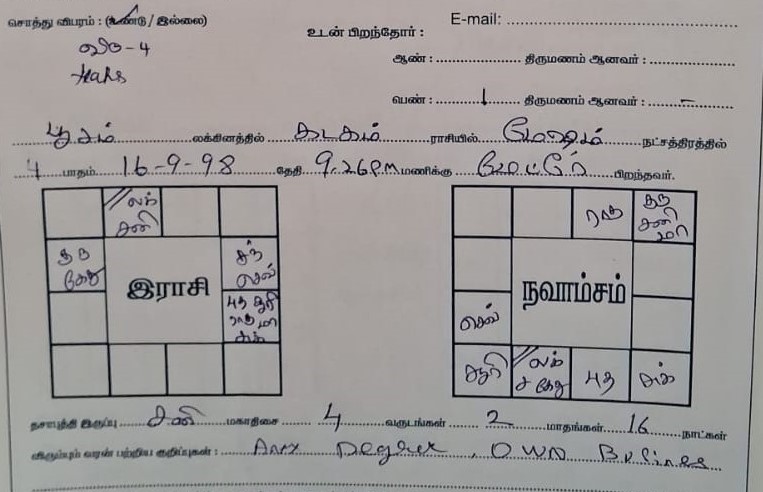 சொத்து விபரம் : (உண்டு / இல்லை) E-mail: ................................
உடன் பிறந்தோர் :
ஆண் : ..................... திருமணம் ஆனவர் : .....................
பெண் : .........1......... திருமணம் ஆனவர் : .........-.........
பூசம் லக்கினத்தில் கடகம் ராசியில் மேஷம் நட்சத்திரத்தில்
4 பாதம் 16-9-98 தேதி 9.26 PM மணிக்கு பிறந்தவர்.
லக் ராகு குரு
சனி சனி
மா
குரு சந்
கேது செவ்
இராசி நவாம்சம்
புத சூரி செவ்
ராகு மா
சுக்
சூரி லக் புத சுக்
ச கேது
தசாபுத்தி இருப்பு சனி மகாதிசை 4 வருடங்கள் 2 மாதங்கள் 16 நாட்கள்
விரும்பும் வரன் பற்றிய குறிப்புகள் : Any Degree, OWN Business